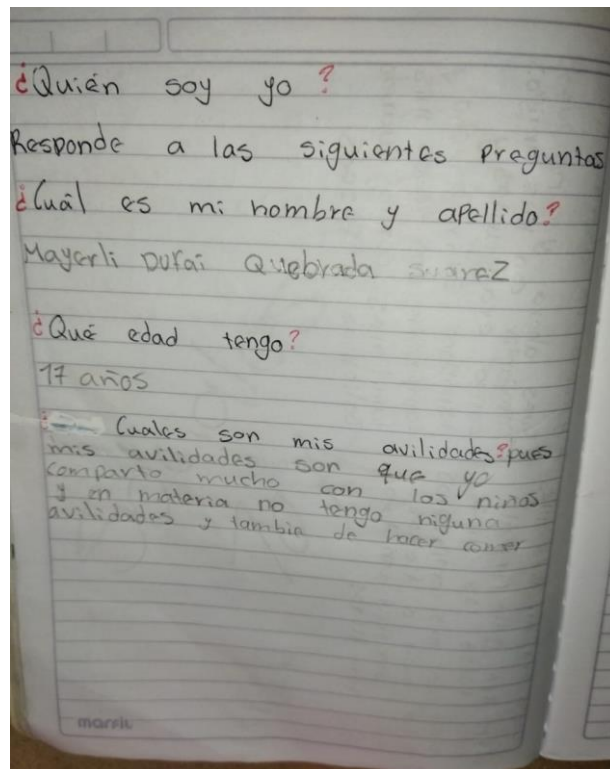 ¿Quién soy yo?
Responde a las siguientes preguntas
¿Cuál es mi nombre y apellido?
Mayerli Durai Quebrada Suarez
¿Qué edad tengo?
17 años
¿Cuales son mis avilidades? pues
mis avilidades son que yo
comparto mucho con los niños
y en materia no tengo niguna
avilidades y tambin de hacer comer